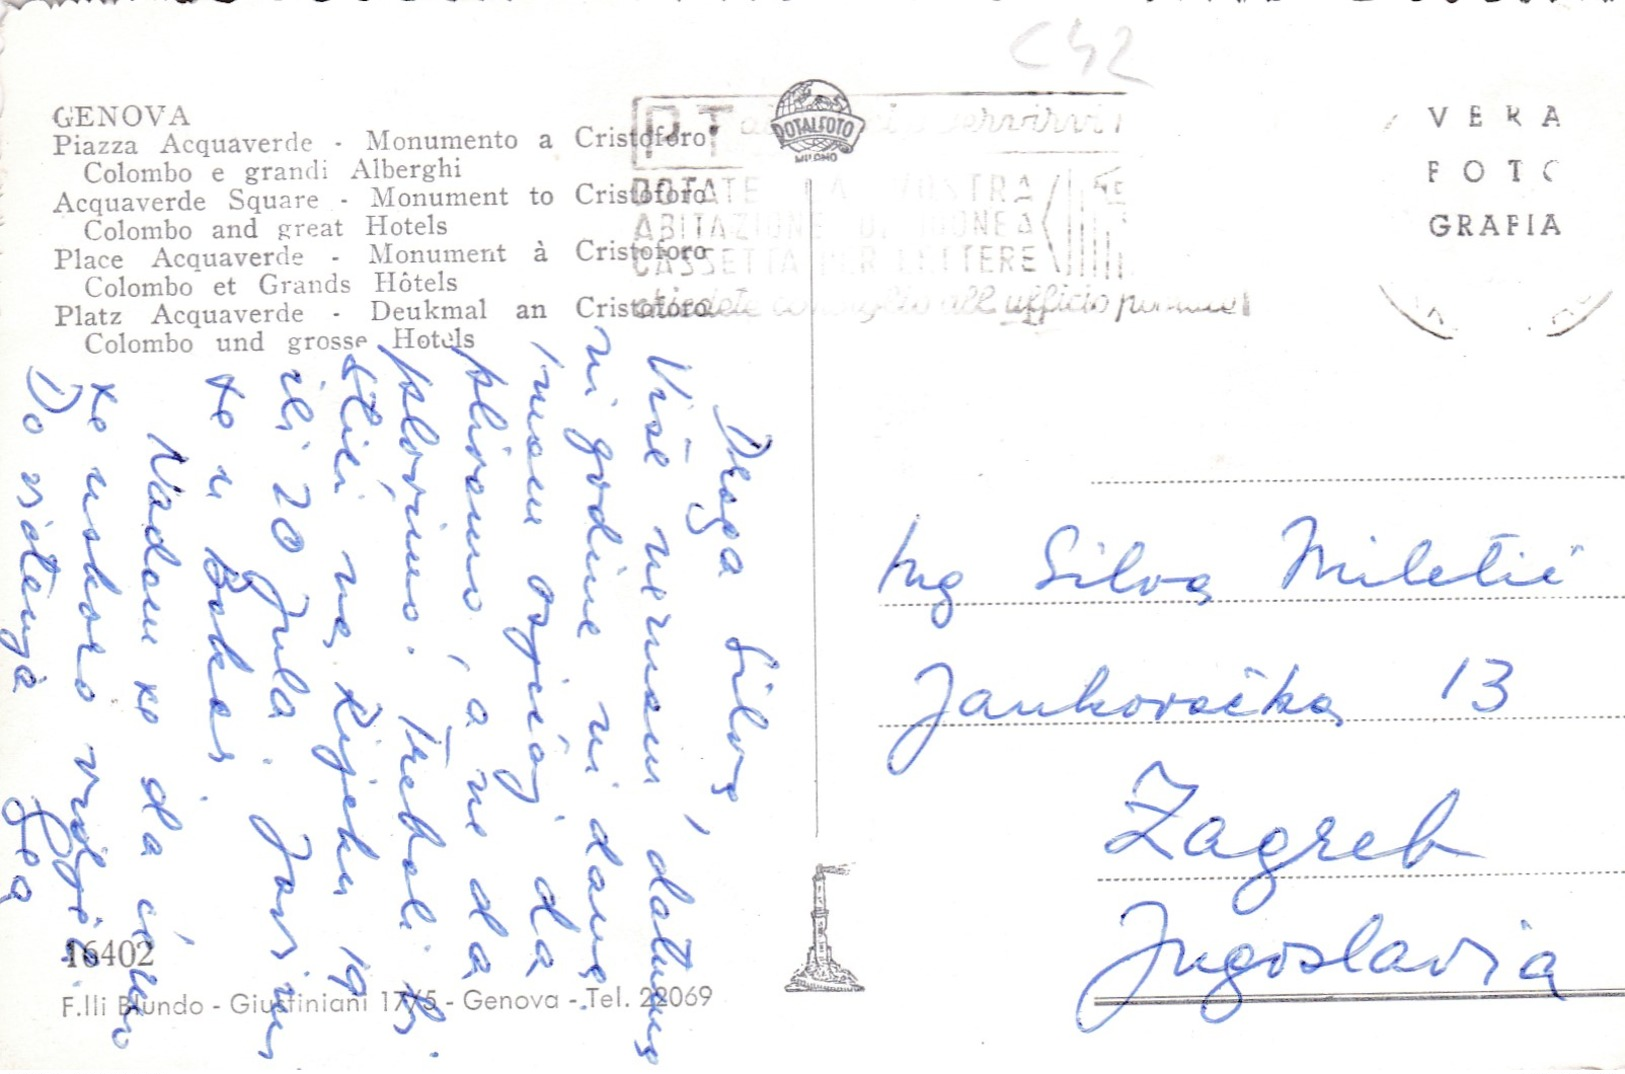 C42
GENOVA
Piazza Acquaverde - Monumento a Cristoforo
Colombo e grandi Alberghi
Acquaverde Square - Monument to Cristoforo
Colombo and great Hotels
Place Acquaverde - Monument à Cristoforo
Colombo et Grands Hôtels
Platz Acquaverde - Deukmal an Cristoforo
Colombo und grosse Hotels
ROTALFOTO
MILANO
PT
servirvi
DOTATE LA VOSTRA
ABITAZIONE DI IDONEA
CASSETTA PER LETTERE
chiedete consiglio all ufficio postale
VERA
FOTO
GRAFIA
Draga Silva,
Više nemam datuma
ni godine ni dana
imam osjećaj da
plivamo, a ne da
plovimo. Trebali bi
stići na Rijeku 19
ili 20 Jula. Javim
te u Bakar.
Nadam se da ćemo
se uskoro vidjeti.
Do viđenja
Ing Silva Miletić
Jankovačka 13
Zagreb
Jugoslavia
16402
F.lli Blundo - Giustiniani 17/5 - Genova - Tel. 22069